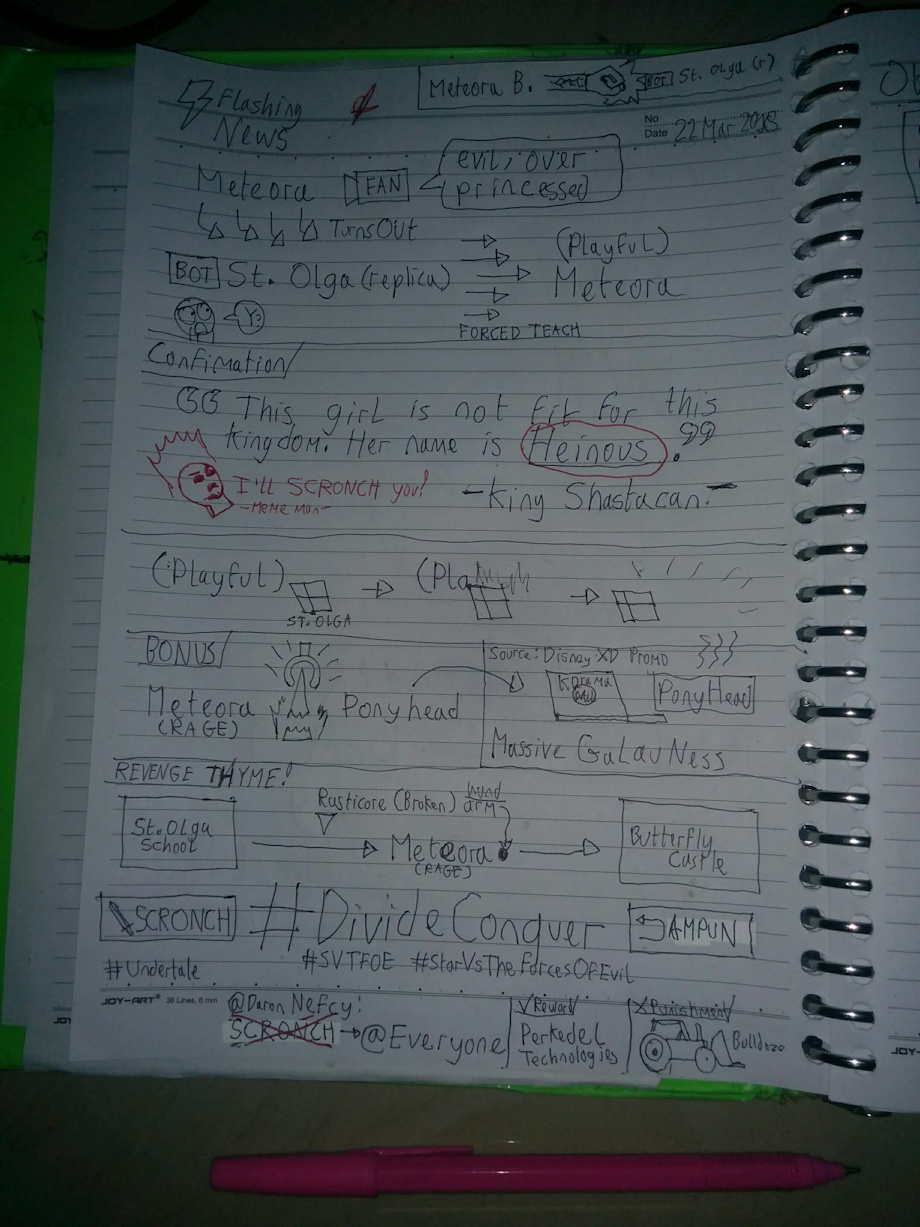 Meteora B. BOT St. Olga (r)
Flashing
News
No
Date 22 Mar 2018
Meteora FAN evil, over
princessed
Turns Out
(Playful)
BOT St. Olga (replica) Meteora
Y?
FORCED TEACH
Confimation
66 This girl is not fit for this
kingdom. Her name is Heinous. 99
I'LL SCRONCH YOU! -King Shastacan.-
-MEME MAN-
(Playful) (Pla
ST. OLGA
BONUS Source: Disney XD PROMO
KDrama PonyHead
Meteora Ponyhead
(RAGE)
Massive GalauNess
REVENGE THYME!
Rusticore (Broken) hand
arm
St. Olga
School Meteora Butterfly
Castle
(RAGE)
SCRONCH #DivideConquer AMPUN
#Undertale #SVTFOE #StarVsTheForcesOfEvil
JOY-ART® 36 Lines, 6 mm
@Daron Nefcy: √ Reward X Punishment
SCRONCH → @Everyone Perkedel
Technologies Bulldozo